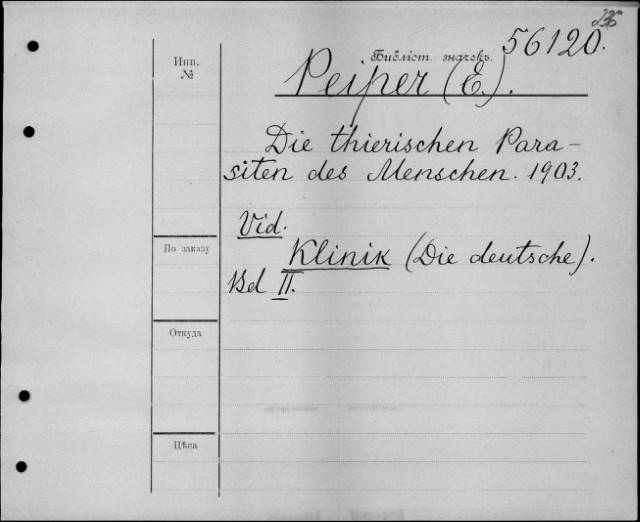 Инв.
№
Библіот. значекъ.
56120.
Peiper (E.).
Die thierischen Para-
siten des Menschen. 1903.
Vid.
По заказу
Klinik (Die deutsche).
Bd II.
Откуда
Цѣна